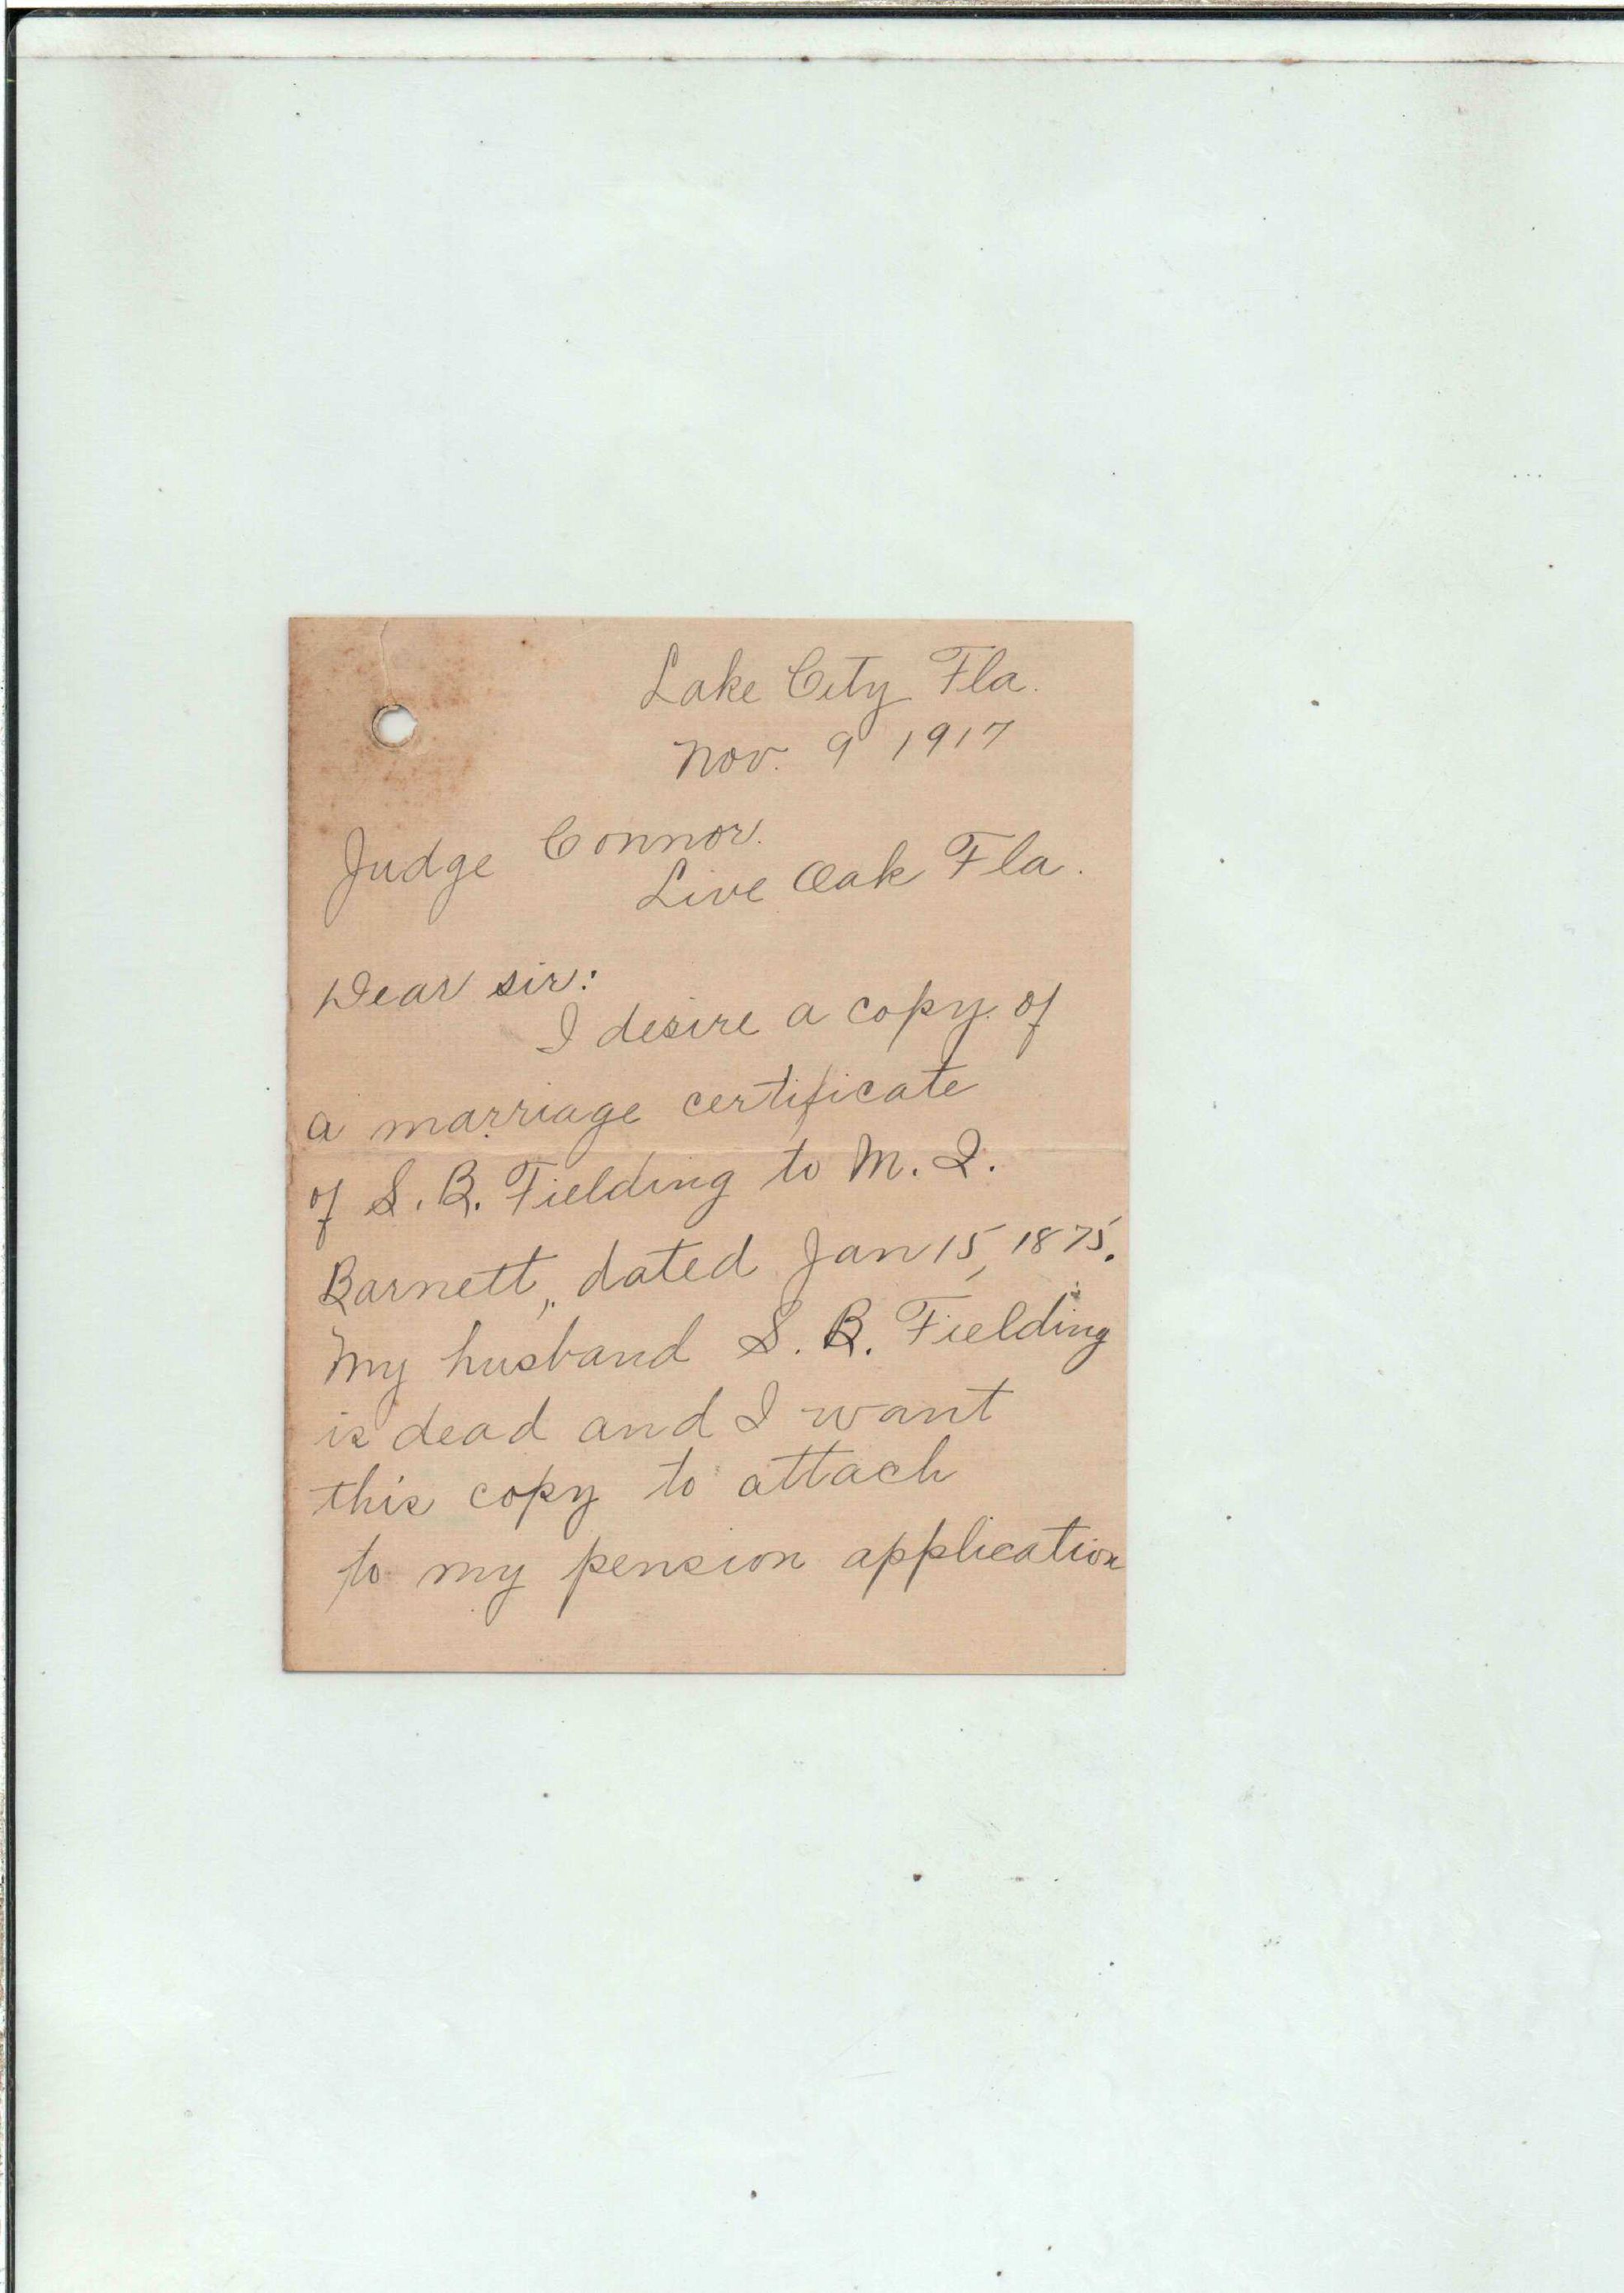 Lake City Fla.
Nov. 9 1917
Judge Connor.
Live Oak Fla.
Dear sir:
I desire a copy of
a marriage certificate
of S. B. Fielding to M. I.
Barnett, dated Jan 15, 1875.
My husband S. B. Fielding
is dead and I want
this copy to attach
to my pension application